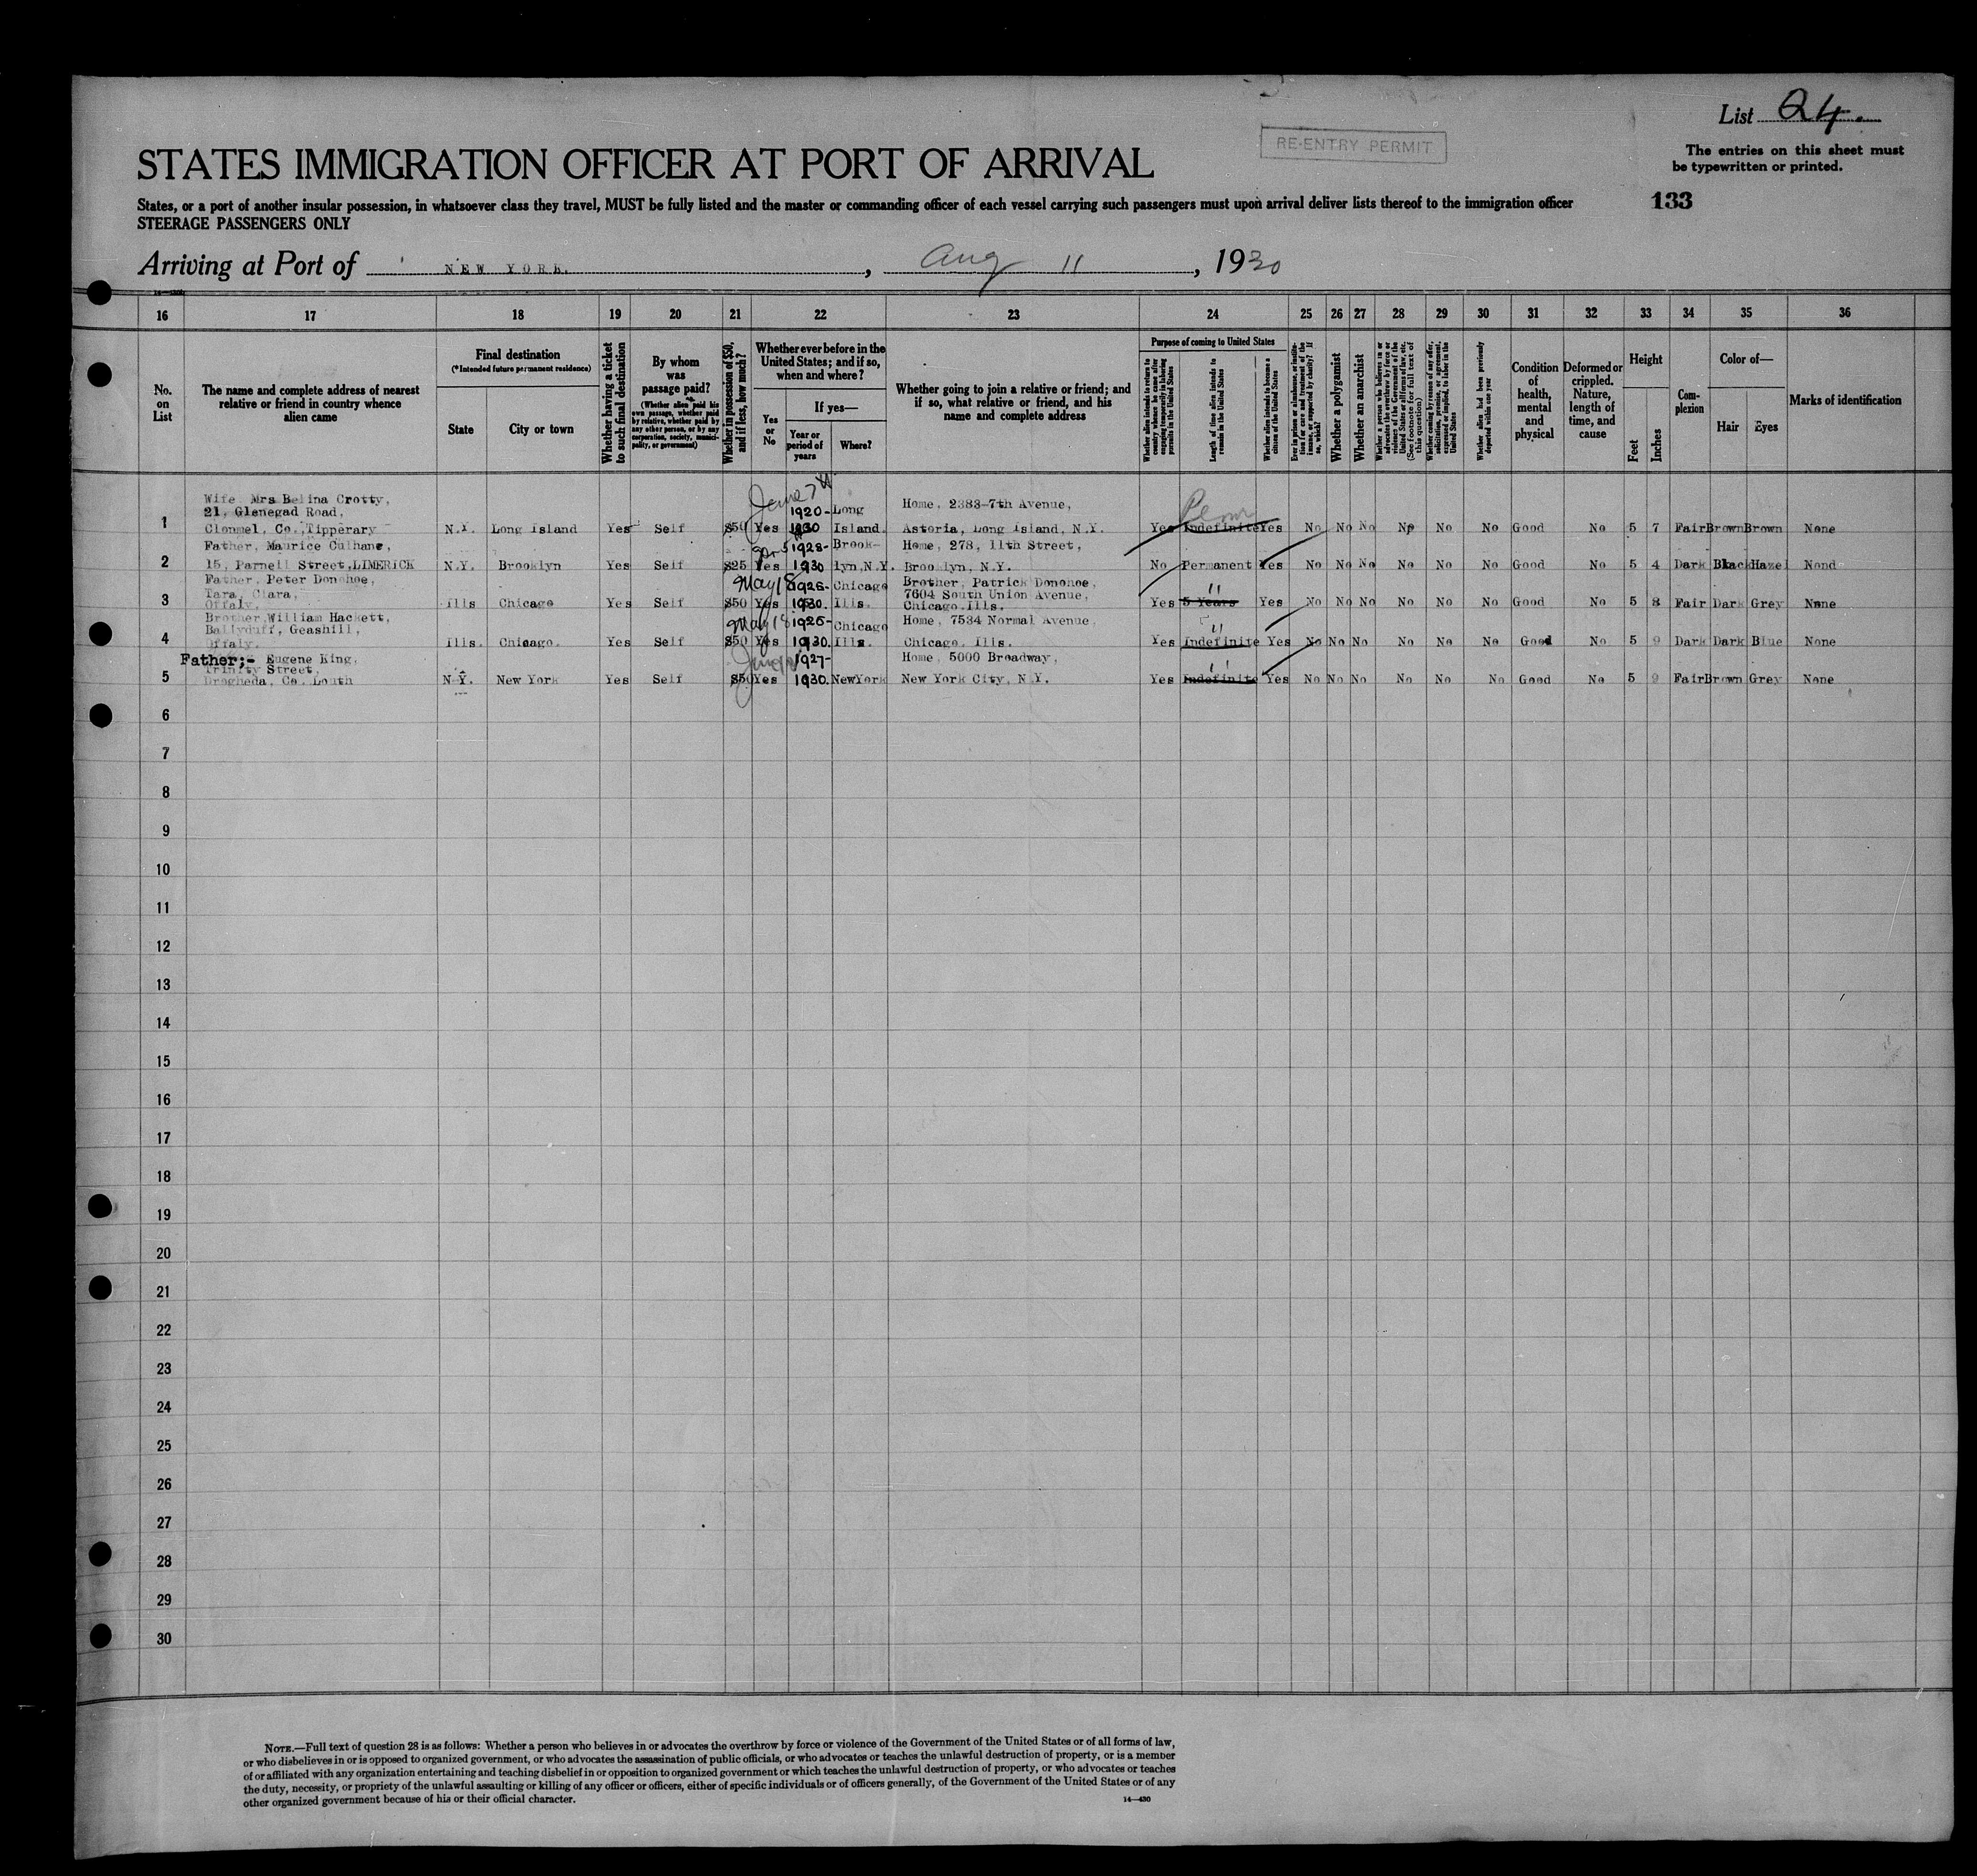 List 24.
RE-ENTRY PERMIT
The entries on this sheet must
be typewritten or printed.
STATES IMMIGRATION OFFICER AT PORT OF ARRIVAL
133
States, or a port of another insular possession, in whatsoever class they travel, MUST be fully listed and the master or commanding officer of each vessel carrying such passengers must upon arrival deliver lists thereof to the immigration officer
STEERAGE PASSENGERS ONLY
Arriving at Port of NEW YORK. , Aug 11 , 1930
16 17 18 19 20 21 22 23 24 25 26 27 28 29 30 31 32 33 34 35 36
No. on List
The name and complete address of nearest relative or friend in country whence alien came
Final destination
(*Intended future permanent residence)
State
City or town
Whether having a ticket to such final destination
By whom was passage paid?
(Whether alien paid his own passage, whether paid by relative, whether paid by any other person, or by any corporation, society, municipality, or government)
Whether in possession of $50, and if less, how much?
Whether ever before in the United States; and if so, when and where?
Yes or No
If yes—
Year or period of years
Where?
Whether going to join a relative or friend; and if so, what relative or friend, and his name and complete address
Purpose of coming to United States
Whether alien intends to return to country whence he came after engaging temporarily in laboring pursuits in the United States
Length of time alien intends to remain in the United States
Whether alien intends to become a citizen of the United States
Ever in prison or almshouse, or institution for care and treatment of the insane, or supported by charity? If so, which?
Whether a polygamist
Whether an anarchist
Whether a person who believes in or advocates the overthrow by force or violence of the Government of the United States or all forms of law, etc. (See footnote for full text of this question)
Whether coming by reason of any offer, solicitation, promise, or agreement, expressed or implied, to labor in the United States
Whether alien had been previously deported within one year
Condition of health, mental and physical
Deformed or crippled. Nature, length of time, and cause
Height
Feet
Inches
Complexion
Color of—
Hair
Eyes
Marks of identification
1 Wife Mrs Belina Crotty,
21, Glenegad Road,
Clonmel, Co. Tipperary N.Y. Long Island Yes Self $50 Yes June 7 1920-1930 Long Island. Home, 2383-7th Avenue, Astoria, Long Island, N.Y. Yes Indefinite Perm Yes No No No No No No Good No 5 7 Fair Brown Brown None
2 Father, Maurice Culhane,
15, Parnell Street, LIMERICK N.Y. Brooklyn Yes Self $25 Yes 1928-1930 Brooklyn, N.Y. Home, 278, 11th Street, Brooklyn, N.Y. No Permanent Yes No No No No No No Good No 5 4 Dark Black Hazel Nond
3 Father, Peter Donohoe,
Tara, Clara,
Offaly. Ills Chicago Yes Self $50 Yes May 18 1926-1930. Chicago Ills. Brother, Patrick Donohoe, 7604 South Union Avenue, Chicago. Ills. Yes 5 Years " Yes No No No No No No Good No 5 8 Fair Dark Grey None
4 Brother, William Hackett,
Ballyduff, Geashill,
Offaly. Ills. Chicago. Yes Self $50 Yes May 18 1926-1930. Chicago Ills. Home, 7534 Normal Avenue, Chicago, Ills. Yes Indefinite " Yes No No No No No No Good No 5 9 Dark Dark Blue None
5 Father;- Eugene King,
Trinity Street,
Drogheda, Co. Louth N.Y. New York Yes Self $50 Yes 1927-1930. New York Home, 5000 Broadway, New York City, N.Y. Yes Indefinite " Yes No No No No No No Good No 5 9 Fair Brown Grey None
6
7
8
9
10
11
12
13
14
15
16
17
18
19
20
21
22
23
24
25
26
27
28
29
30
NOTE.—Full text of question 28 is as follows: Whether a person who believes in or advocates the overthrow by force or violence of the Government of the United States or of all forms of law,
or who disbelieves in or is opposed to organized government, or who advocates the assassination of public officials, or who advocates or teaches the unlawful destruction of property, or is a member
of or affiliated with any organization entertaining and teaching disbelief in or opposition to organized government or which teaches the unlawful destruction of property, or who advocates or teaches
the duty, necessity, or propriety of the unlawful assaulting or killing of any officer or officers, either of specific individuals or of officers generally, of the Government of the United States or of any
other organized government because of his or their official character.
14—430